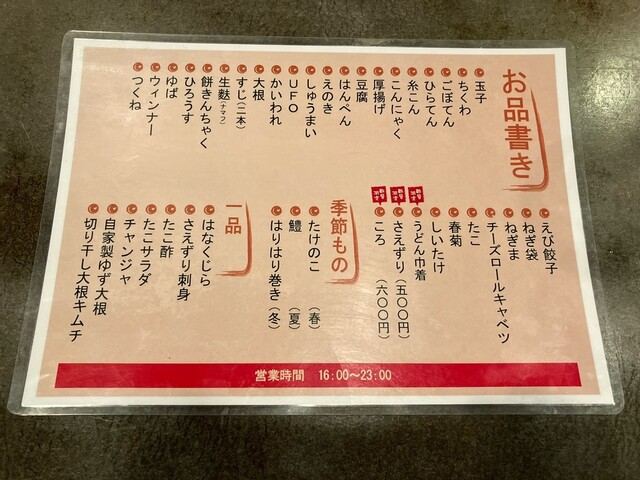 お品書き
玉子
ちくわ
ごぼてん
ひらてん
糸こん
こんにゃく
厚揚げ
豆腐
はんぺん
えのき
しゅうまい
UFO
かいわれ
大根
すじ(二本)
生麩(ナマフ)
餅きんちゃく
ひろうす
ゆば
ウィンナー
つくね
えび餃子
ねぎ袋
ねぎま
チーズロールキャベツ
たこ
春菊
しいたけ
うどん巾着
さえずり(五〇〇円)
ころ(六〇〇円)
季節もの
たけのこ(春)
鱧(夏)
はりはり巻き(冬)
一品
はなくじら
さえずり刺身
たこ酢
たこサラダ
チャンジャ
自家製ゆず大根
切り干し大根キムチ
営業時間 16:00～23:00